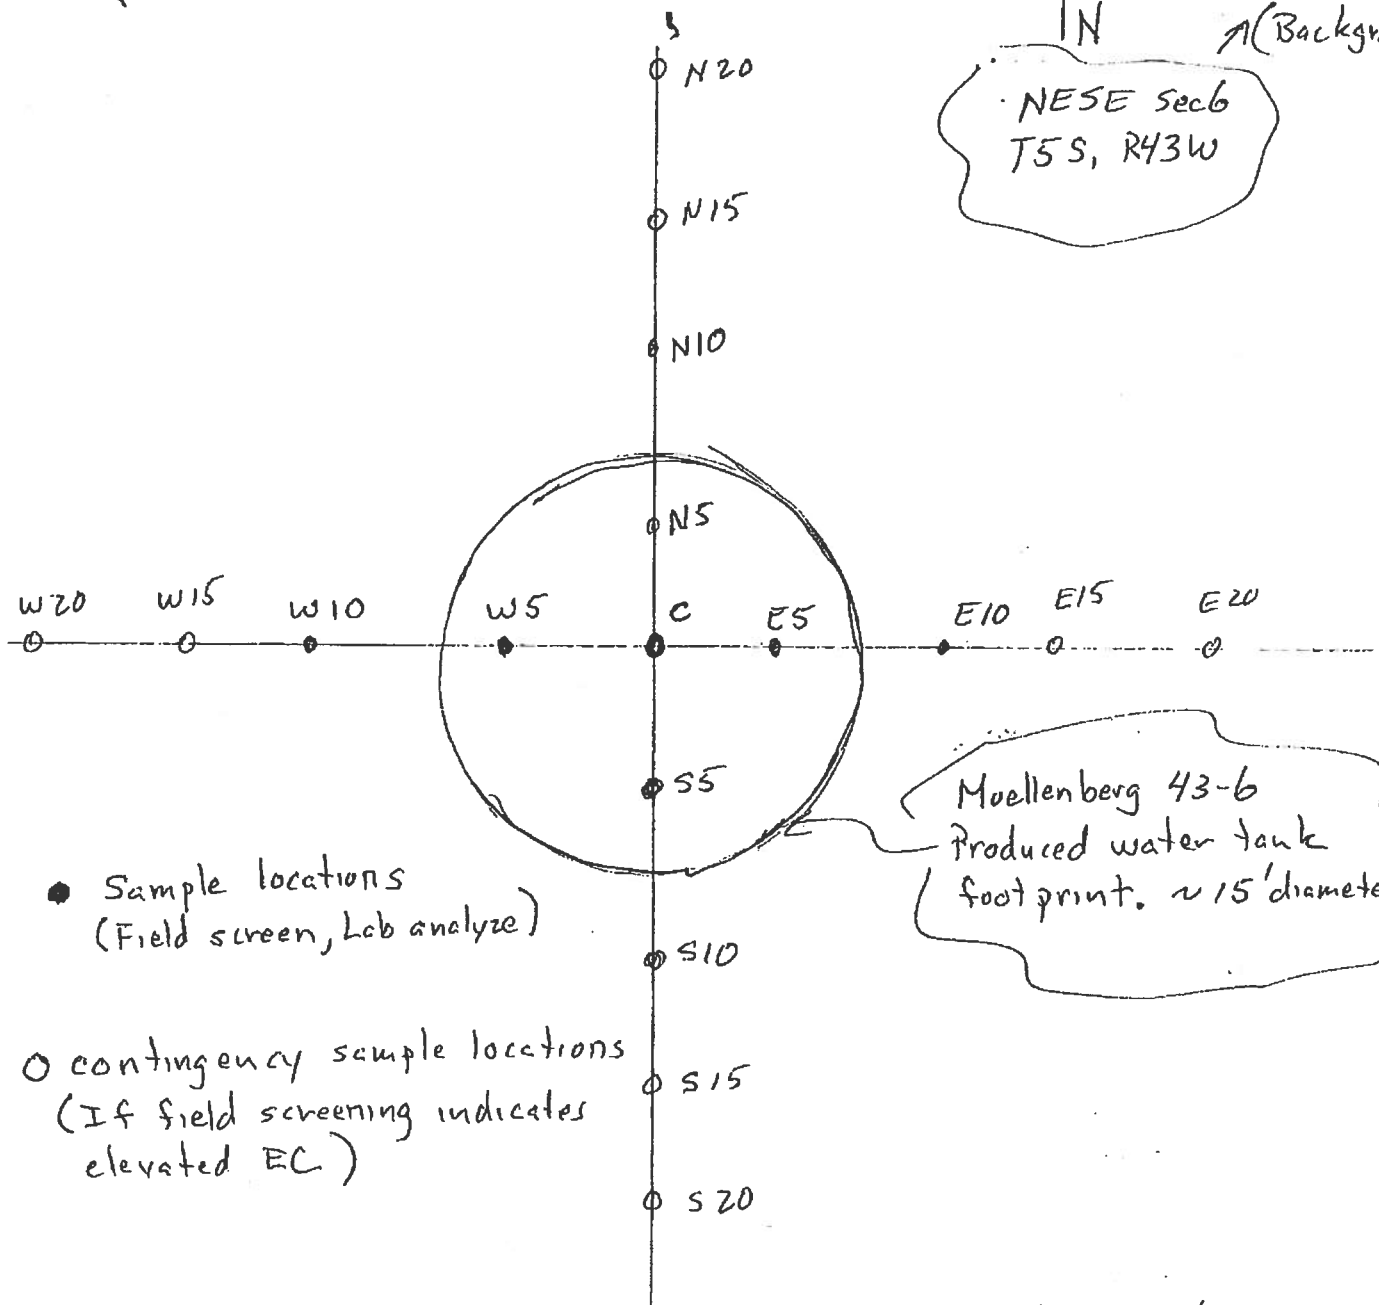 IN
(Backgr
N20
NESE Sec6
T5S, R43W
N15
N10
N5
W20 W15 W10 W5 C E5 E10 E15 E20
S5
Muellenberg 43-6
Produced water tank
footprint. ~15' diamete
Sample locations
(Field screen, Lab analyze)
S10
contingency sample locations
(If field screening indicates
elevated EC)
S15
S20